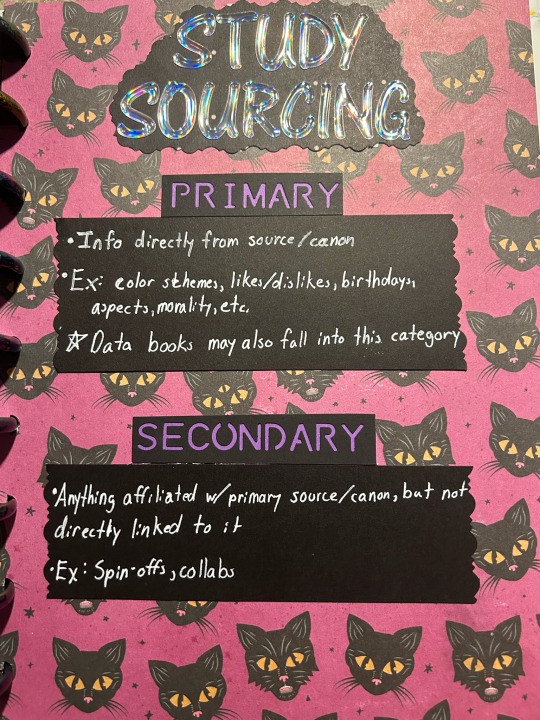 STUDY
SOURCING
PRIMARY
• Info directly from source/canon
• Ex: color schemes, likes/dislikes, birthdays,
aspects, morality, etc.
☆ Data books may also fall into this category
SECONDARY
• Anything affiliated w/ primary source/canon, but not
directly linked to it
• Ex: Spin-offs, collabs